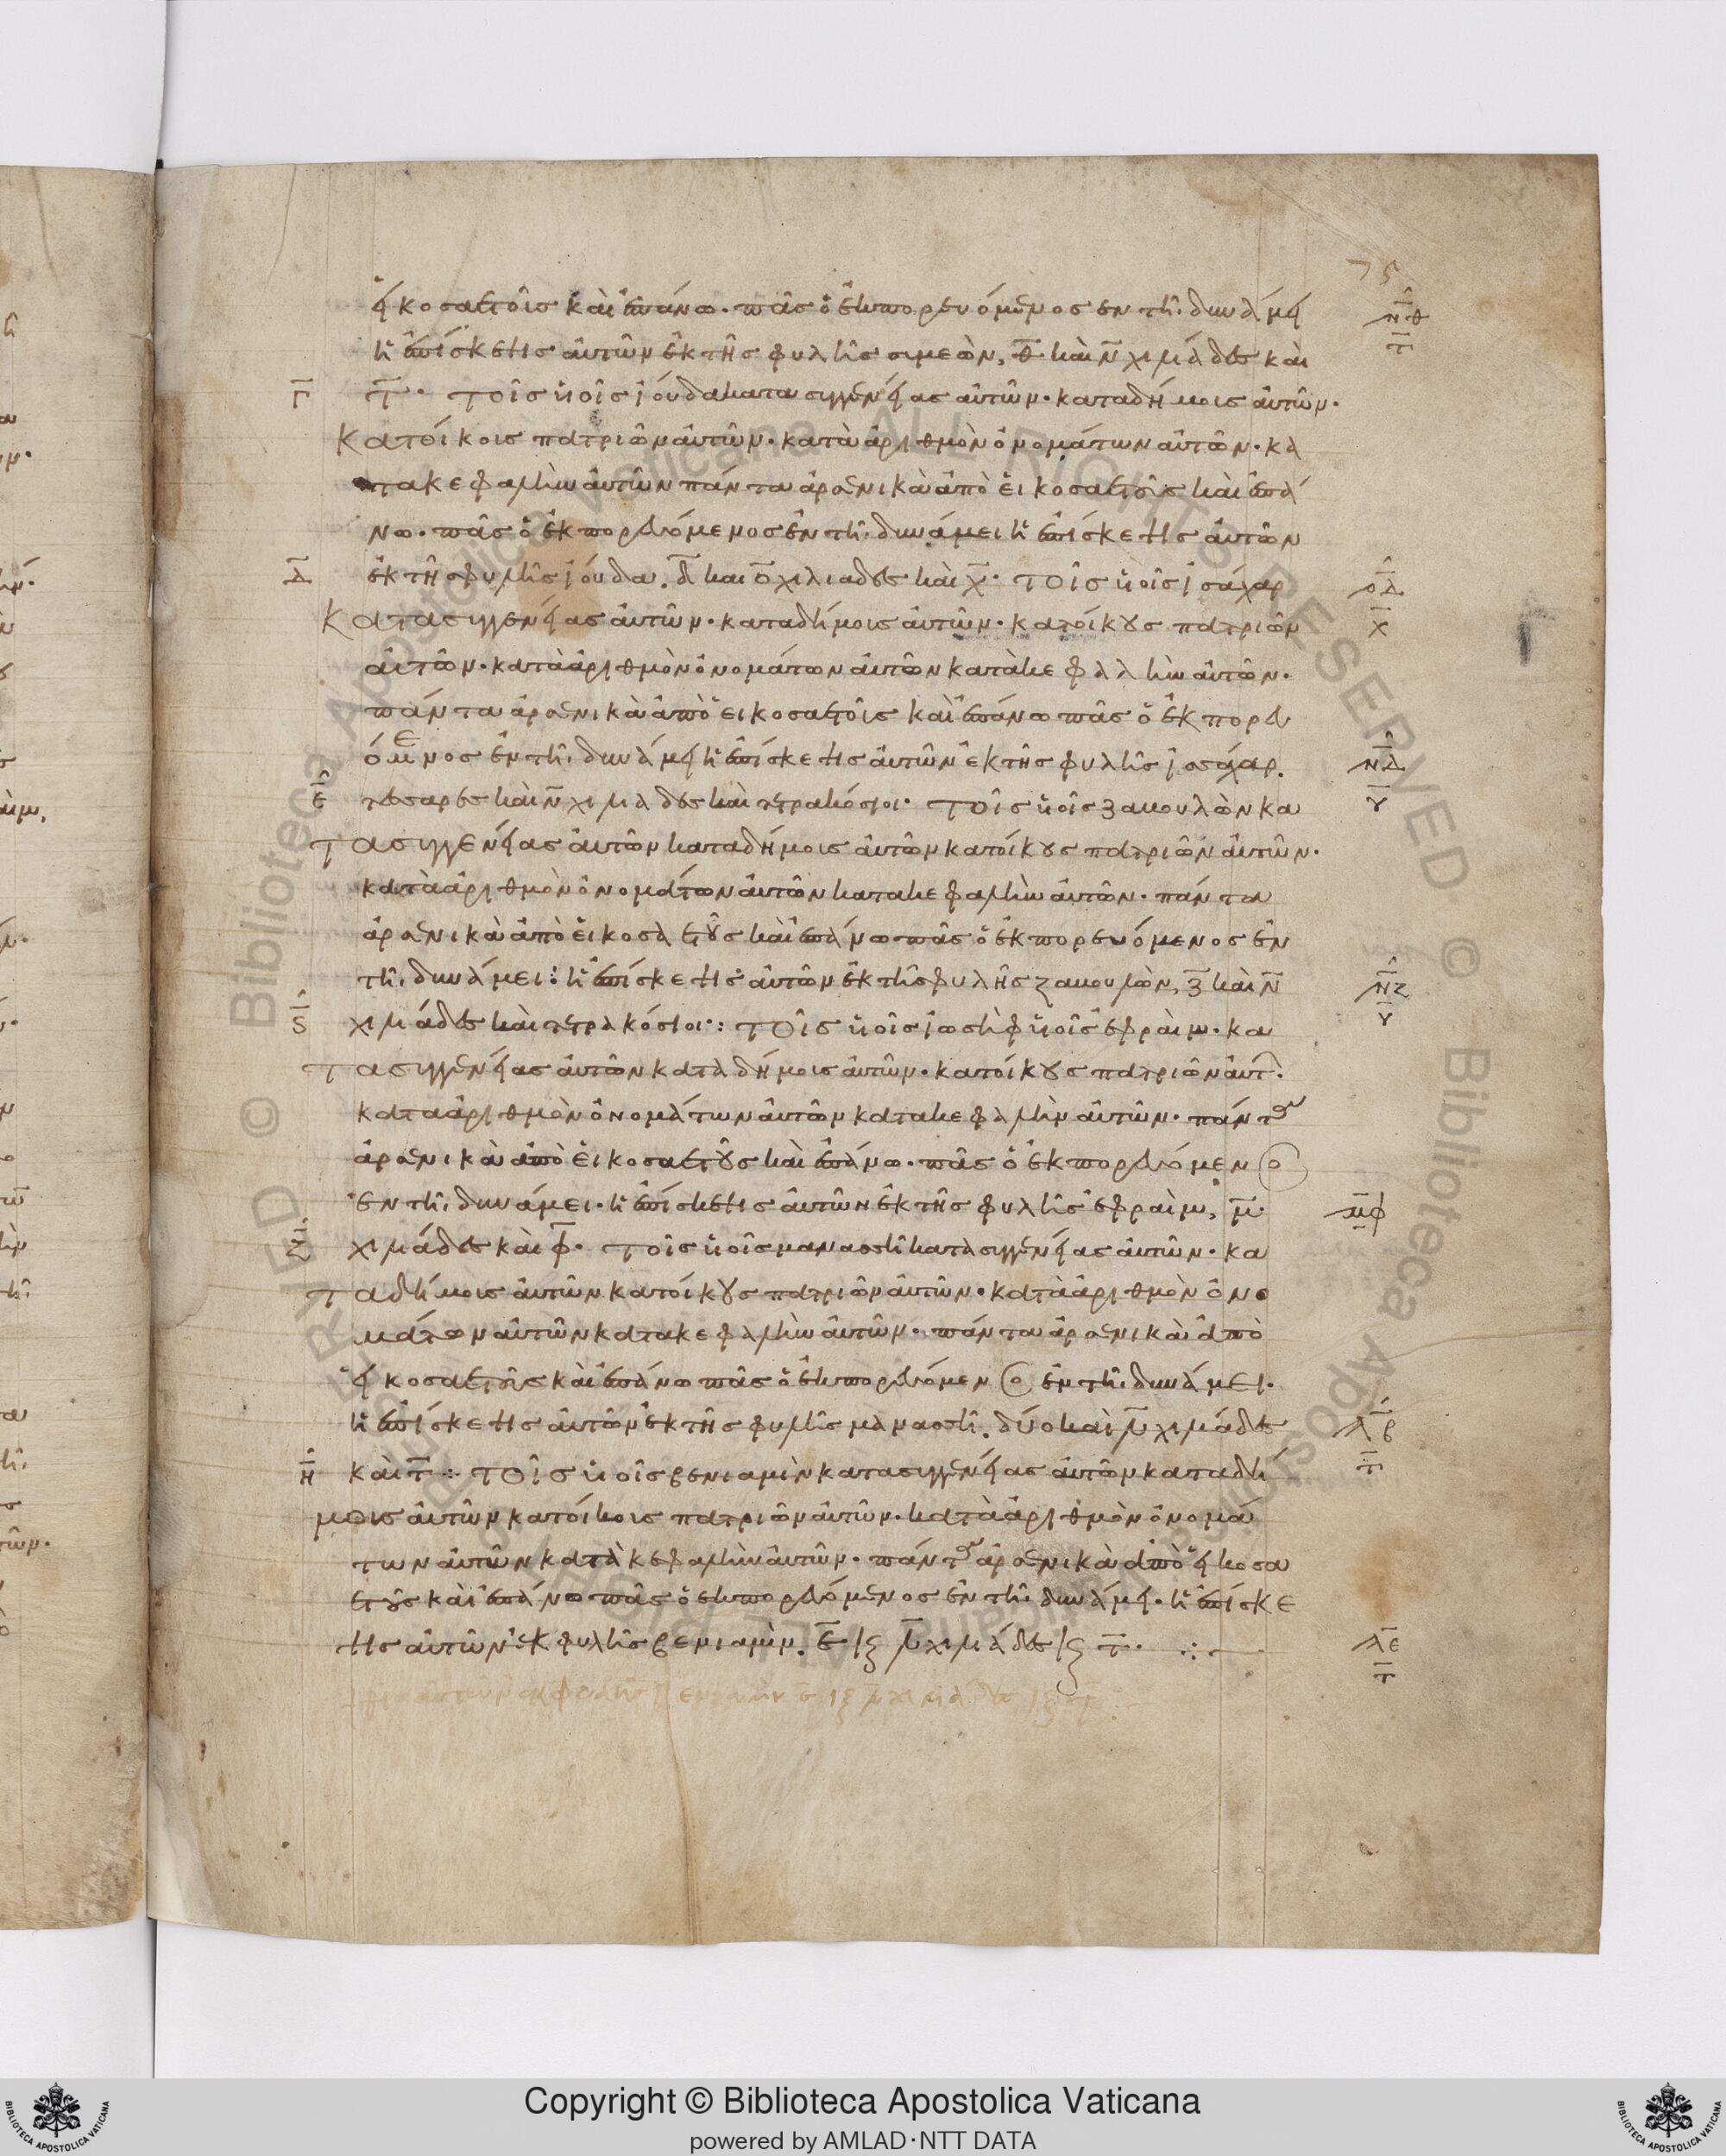 75
εἰκοσαετοῖς καὶ ἐπάνω. πᾶς ὁ ἐκπορευόμενος ἐν τῆ δυνάμει
ν̅θ̅
τ̅
ἡ ἐπίσκεψις αὐτῶν ἐκ τῆς φυλῆς συμεὼν, θ̅ καὶ ν̅ χιλιάδες καὶ
γ̅
τ̅. τοῖς υἱοῖς ἰούδα κατα συγγενείας αὐτῶν. κατα δήμοις αὐτῶν.
κατ οίκοις πατριῶν αὐτῶν. κατὰ ἀριθμὸν ὀνομάτων αὐτῶν. κα
τα κεφαλὴν αὐτῶν πάντα ἀρσενικὰ ἀπὸ εἰκοσαετοῖς καὶ ἐπά
νω. πᾶς ὁ ἐκπορευόμενος ἐν τῆ δυνάμει ἡ ἐπίσκεψις αὐτῶν
δ̅
ἐκ τῆς φυλῆς ἰούδα. δ̅ καὶ ο̅ χιλιαδες καὶ χ̅. τοῖς υἱοῖς ἰσάχαρ
ο̅δ̅
χ̅
κατα συγγενείας αὐτῶν. κατα δήμοις αὐτῶν. κατ οίκους πατριῶν
αὐτῶν. κατὰ ἀριθμὸν ὀνομάτων αὐτῶν κατὰ κεφαλὴν αὐτῶν.
πάντα ἀρσενικὰ ἀπὸ εἰκοσαετοῖς καὶ ἐπάνω πᾶς ὁ ἐκπορευ
όμενος ἐν τῆ δυνάμει ἡ ἐπίσκεψις αὐτῶν ἐκ τῆς φυλῆς ἰσάχαρ.
ν̅δ̅
υ̅
ε̅
τέσαρες καὶ ν̅ χιλιάδες καὶ τετρακόσιοι. τοῖς υἱοῖς ζαβουλὼν κα
τα συγγενείας αὐτῶν κατα δήμοις αὐτῶν κατ οίκους πατριῶν αὐτῶν.
κατὰ ἀριθμὸν ὀνομάτων αὐτῶν κατα κεφαλὴν αὐτῶν. πάντα
ἀρσενικὰ ἀπὸ εἰκοσαετοῦς καὶ ἐπάνω πᾶς ὁ ἐκπορευόμενος ἐν
τῆ δυνάμει: ἡ ἐπίσκεψις αὐτῶν ἐκ τῆς φυλῆς ζαβουλὼν, ζ̅ καὶ ν̅
ν̅ζ̅
υ̅
ϛ̅
χιλιάδες καὶ τετρακόσιοι: τοῖς υἱοῖς ἰωσὴφ υἱοῖς ἐφραὶμ. κα
τα συγγενείας αὐτῶν κατα δήμοις αὐτῶν. κατ οίκους πατριῶν αὐτ.
κατα ἀριθμὸν ὀνομάτων αὐτῶν κατα κεφαλὴν αὐτῶν. πάντα
ἀρσενικὰ ἀπὸ εἰκοσαετοῦς καὶ ἐπάνω. πᾶς ὁ ἐκπορευόμενο
ἐν τῆ δυνάμει. ἡ ἐπίσκεψις αὐτῶν ἐκ τῆς φυλῆς ἐφραὶμ, μ̅
μ̅φ
ζ̅
χιλιάδες καὶ φ̅. τοῖς υἱοῖς μανασσῆ κατα συγγενείας αὐτῶν. κα
τα δήμοις αὐτῶν κατ οίκους πατριῶν αὐτῶν. κατὰ ἀριθμὸν ὀνο
μάτων αὐτῶν κατα κεφαλὴν αὐτῶν. πάντα ἀρσενικὰ ἀπὸ
εἰκοσαετοῖς καὶ ἐπάνω πᾶς ὁ ἐκπορευόμενο ἐν τῆ δυνάμει.
ἡ ἐπίσκεψις αὐτῶν ἐκ τῆς φυλῆς μανασσῆ. δύο καὶ λ̅ χιλιάδες
λ̅β
τ̅
η̅
καὶ τ̅: τοῖς υἱοῖς βενιαμὶν κατα συγγενείας αὐτῶν κατα δή
μοις αὐτῶν κατ οίκοις πατριῶν αὐτῶν. κατὰ ἀριθμὸν ὀνομά
των αὐτῶν κατὰ κεφαλὴν αὐτῶν. πάντα ἀρσενικὰ ἀπὸ εἰκοσα
ετοῦς καὶ ἐπάνω πᾶς ὁ ἐκπορευόμενος ἐν τῆ δυνάμει. ἡ ἐπίσκε
ψις αὐτῶν ἐκ φυλῆς βενιαμὶν. ε̅ κς λ̅ χιλιάδες κς τ̅.
λε̅
τ̅
Copyright © Biblioteca Apostolica Vaticana
powered by AMLAD·NTT DATA